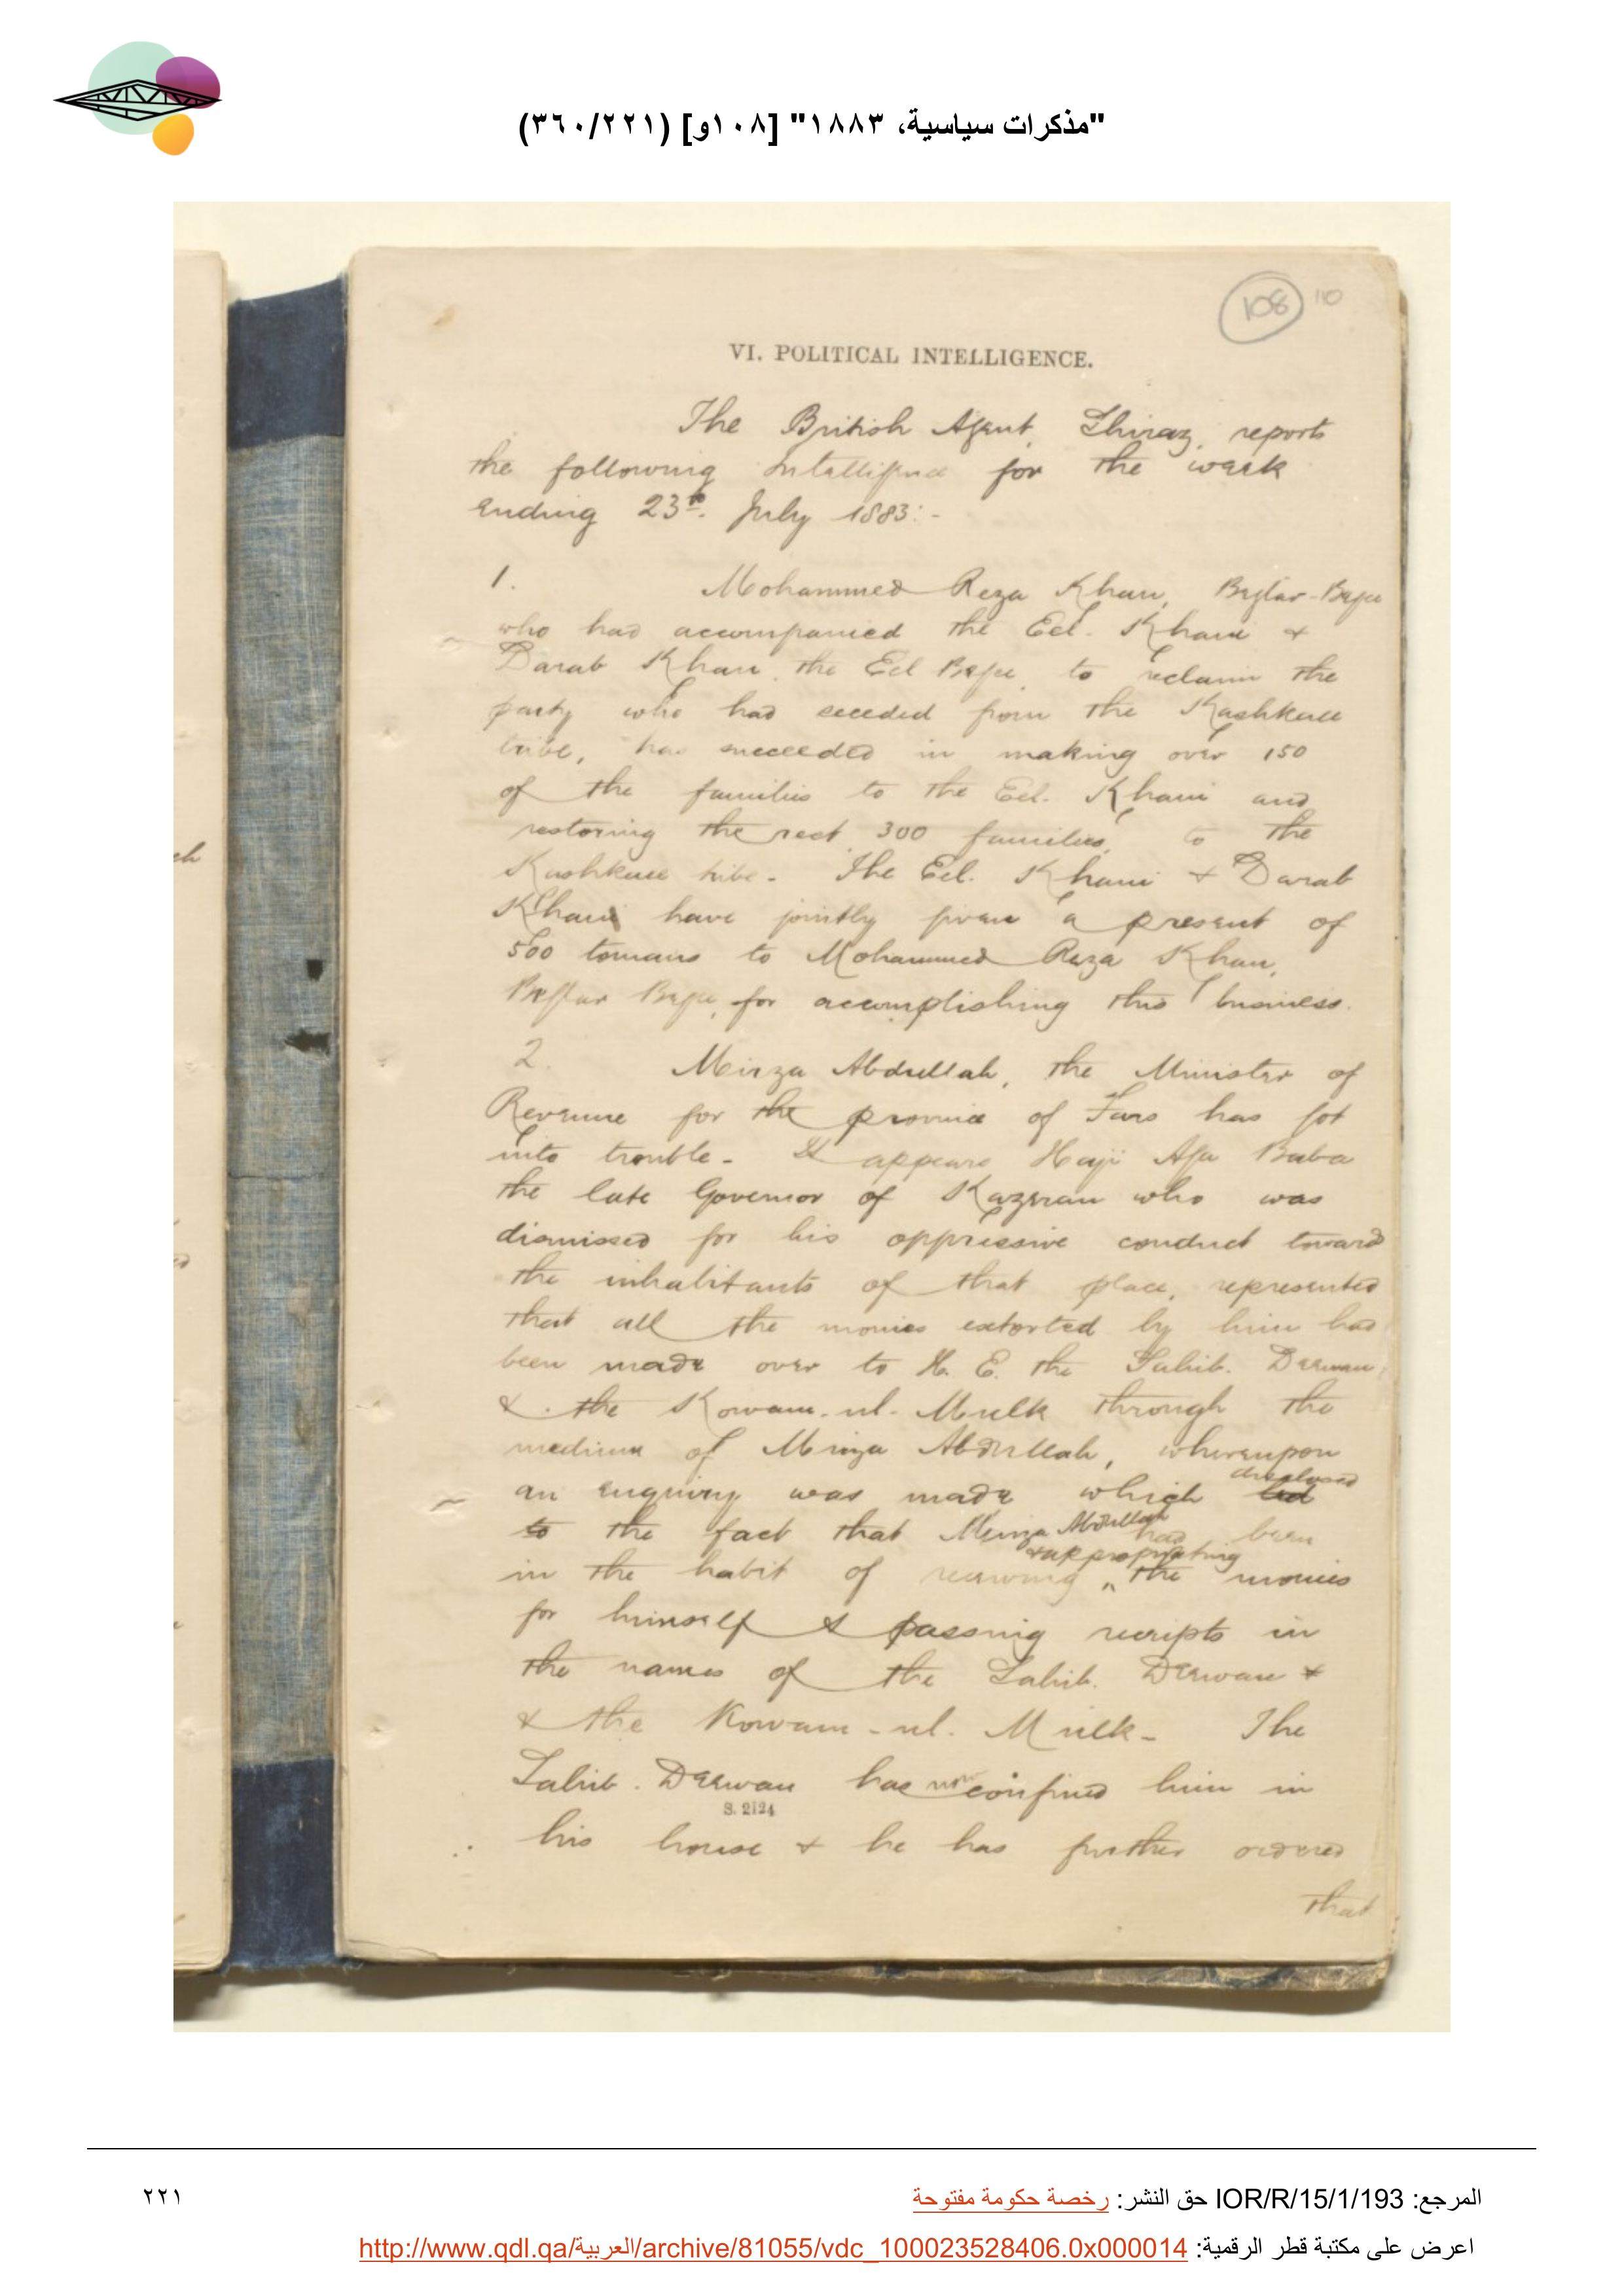 "مذكرات سياسية، ١٨٨٣" [١٠٨و] (٣٦٠/٢٢١)
108 110
VI. POLITICAL INTELLIGENCE.
The British Agent, Shiraz, reports
the following Intelligence for the week
ending 23rd. July 1883:-
1. Mohammed Reza Khan, Beglar-Begee
who had accompanied the Eel. Khani &
Darab Khan, the Eel Begee, to reclaim the
party who had seceded from the Kashkuee
tribe, has succeeded in making over 150
of the families to the Eel. Khani and
restoring the rest, 300 families, to the
Kashkuee tribe. The Eel. Khani & Darab
Khan have jointly given a present of
500 tomans to Mohammed Reza Khan,
Beglar Begee, for accomplishing this business.
2. Mirza Abdullah, the Minister of
Revenue for the province of Fars has got
into trouble. It appears Haji Aga Baba
the late Governor of Kazeran who was
dismissed for his oppressive conduct toward
the inhabitants of that place, represented
that all the monies extorted by him had
been made over to H. E. the Sahib. Deewan,
& the Kowam-ul-Mulk through the
medium of Mirza Abdullah, whereupon
an enquiry was made which led disclosed
to the fact that Mirza Abdullah had been
in the habit of receiving & appropriating the monies
for himself & passing receipts in
the names of the Sahib. Deewan &
& the Kowam-ul-Mulk. The
Sahib. Deewan has now confined him in
S. 2124
his house & he has further ordered
that
المرجع: IOR/R/15/1/193 حق النشر: رخصة حكومة مفتوحة
٢٢١
اعرض على مكتبة قطر الرقمية: http://www.qdl.qa/العربية/archive/81055/vdc_100023528406.0x000014